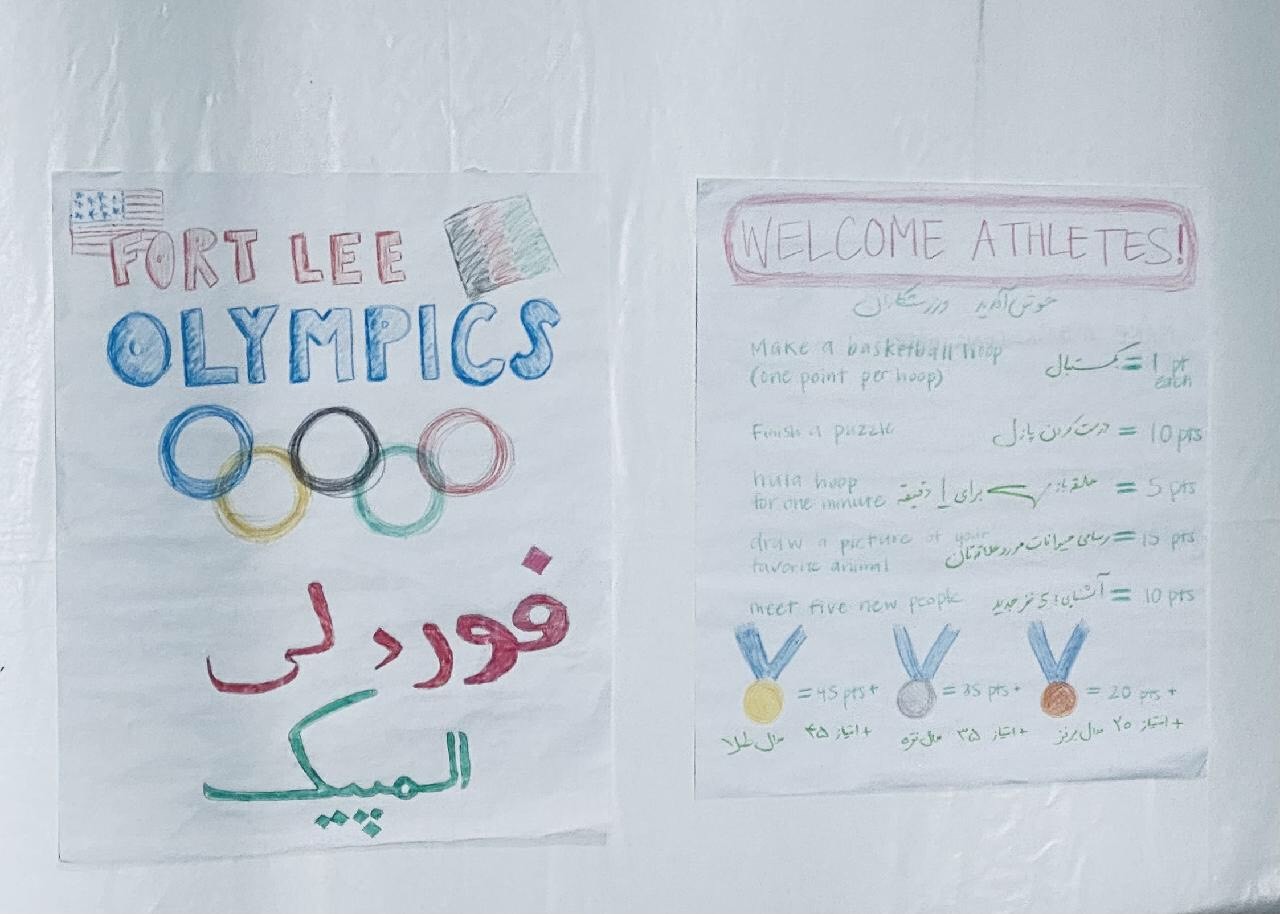 FORT LEE
OLYMPICS
فورد لی
المپیک
WELCOME ATHLETES!
خوش آمدید ورزشکاران
Make a basketball hoop
(one point per hoop)
بسکتبال = 1 pt
each
Finish a puzzle درست کردن پازل = 10 pts
hula hoop
for one minute حلقه بازی برای 1 دقیقه = 5 pts
draw a picture of your
favorite animal رسامی حیوانات مورد علاقه تان = 15 pts
meet five new people آشنایی با 5 نفر جدید = 10 pts
= 45 pts+ = 35 pts+ = 20 pts+
مدال طلا ۴۵ امتیاز + مدال نقره ۳۵ امتیاز + مدال برنز ۲۰ امتیاز +